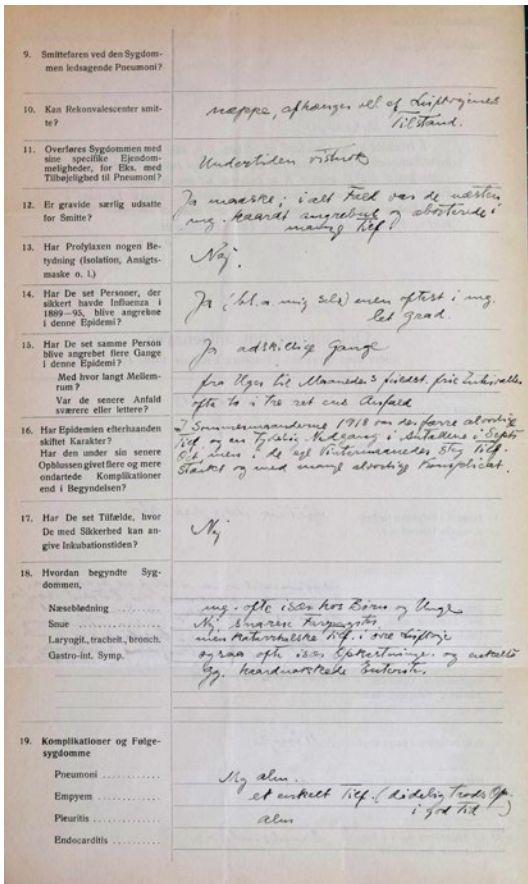 9. Smittefaren ved den Sygdom-
men ledsagende Pneumoni?
10. Kan Rekonvalescenter smit-
te?
næppe, afhænger vel af Luftvejenes
Tilstand.
11. Overføres Sygdommen med
sine specifike Ejendom-
meligheder, for Eks. med
Tilbøjelighed til Pneumoni?
Undertiden vistnok
12. Er gravide særlig udsatte
for Smitte?
Ja maaske; i alt Fald var de næsten
mg. haardt angrebne og aborterede i
mange Tilf.
13. Har Profylaxen nogen Be-
tydning (Isolation, Ansigts-
maske o. l.)
Nej.
14. Har De set Personer, der
sikkert havde Influenza i
1889—95, blive angrebne
i denne Epidemi?
Ja (bl.a. mig selv) men oftest i mg.
let Grad.
15. Har De set samme Person
blive angrebet flere Gange
i denne Epidemi?
Ja adskillige Gange
Med hvor langt Mellem-
rum?
fra Uger til Maaneders fuldst. frie Intervaller
Var de senere Anfald
sværere eller lettere?
ofte to i tre ret ens Anfald
16. Har Epidemien efterhaanden
skiftet Karakter?
Har den under sin senere
Opblussen givet flere og mere
ondartede Komplikationer
end i Begyndelsen?
I Sommermaanderne 1918 var der færre alvorlige
Tilf. og en tydelig Nedgang i Antallet i Septb
Oct men i de egl Vintermaaneder steg Tilf.
stærkt og med mange alvorlige Komplicat.
17. Har De set Tilfælde, hvor
De med Sikkerhed kan an-
give Inkubationstiden?
Nej
18. Hvordan begyndte Syg-
dommen,
Næseblødning ..........
mg. ofte især hos Børn og Unge
Snue ..................
Nej, snarere
Laryngit., tracheit., bronch.
men katarrhalske Tilf. i øvre Luftveje
Gastro-int. Symp.
ogsaa ofte især Opkastninger og enkelte
Gg. haardnakkede Enteriter.
19. Komplikationer og Følge-
sygdomme
Pneumoni ............
Mg alm.
Empyem .............
et enkelt Tilf. (dødelig trods Op.
i god Tid)
Pleuritis .............
alm
Endocarditis ..........